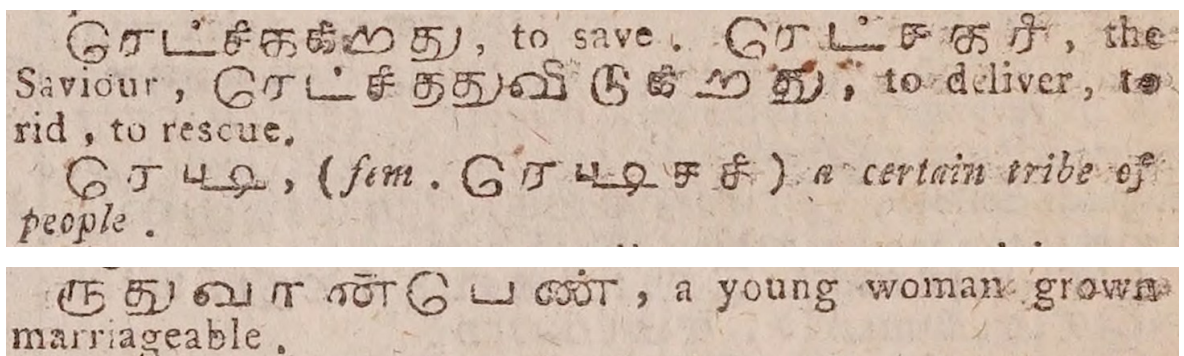 ரெட்சிககிறது, to save. ரெட்சகர், the
Saviour, ரெட்சிததுவிடுகிறது, to deliver, to
rid, to rescue.
ரெட்டி, (fem. ரெட்டிசசி) a certain tribe of
people.
ருதுவான்பெண், a young woman grown
marriageable.